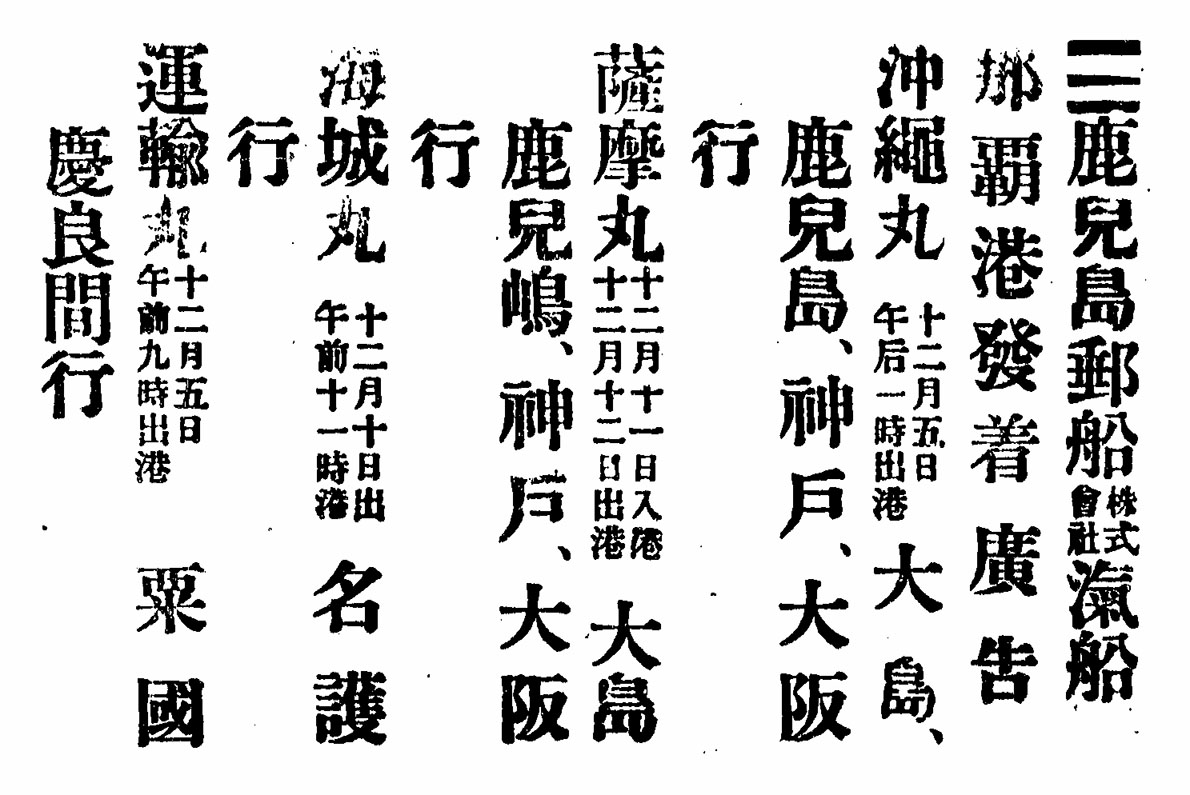 三鹿兒島郵船株式會社滊船
那覇港發着廣告
沖繩丸 十二月五日午后一時出港 大島、
鹿兒島、神戶、大阪
行
薩摩丸 十二月十一日入港十二月十二日出港 大島
鹿兒嶋、神戶、大阪
行
海城丸 十二月十日出午前十一時港 名護
行
運輸丸 十二月五日午前九時出港 粟國
慶良間行